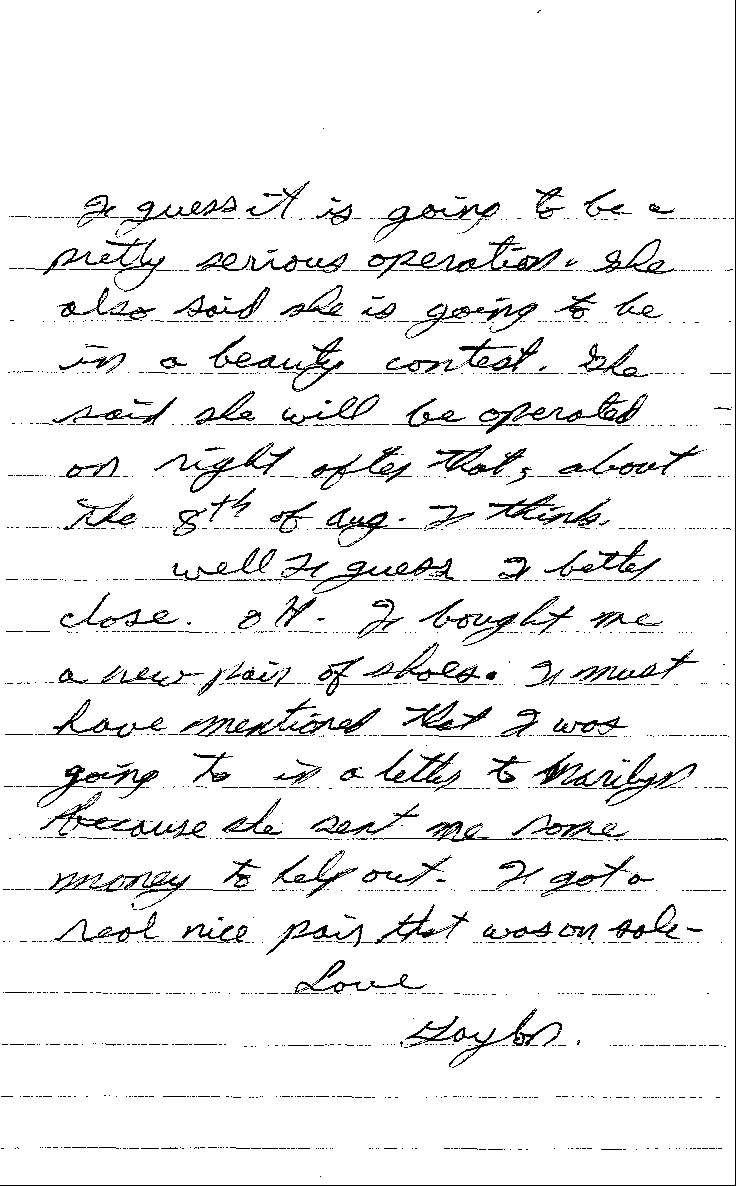 I guess it is going to be a
pretty serious operation. She
also said she is going to be
in a beauty contest. She
said she will be operated
on right after that, about
the 8th of Aug. I think.
well I guess I better
close. oh. I bought me
a new pair of shoes. I must
have mentioned that I was
going to in a letter to Marilyn
because she sent me some
money to help out. I got a
real nice pair that was on sale-
Love